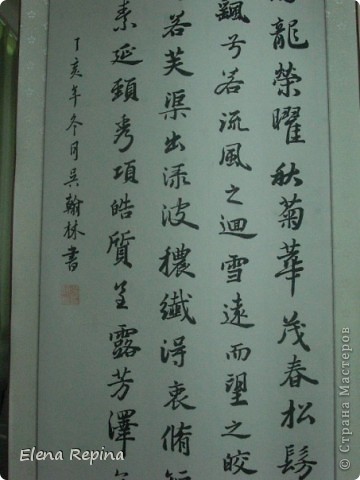 龍榮曜秋菊華茂春松髣
飄兮若流風之迴雪遠而望之皎
若芙渠出淥波穠纖得衷脩短
素延頸秀項皓質呈露芳澤
丁亥年冬月吴翰林書
Elena Repina
© Страна Мастеров